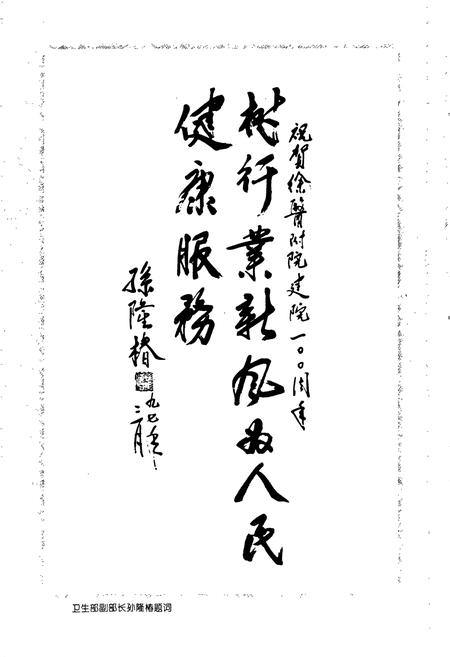 祝贺徐醫附院建院一〇〇周年
树行業新风为人民
健康服務
孫隆椿
九七年
二月
卫生部副部长孙隆椿题词